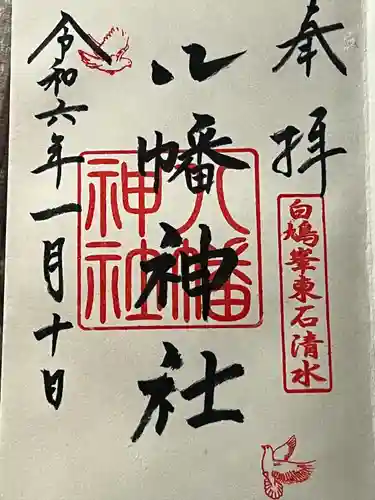 奉拝
白鳩峯東石清水
八幡神社
八幡
神社
令和六年一月十日